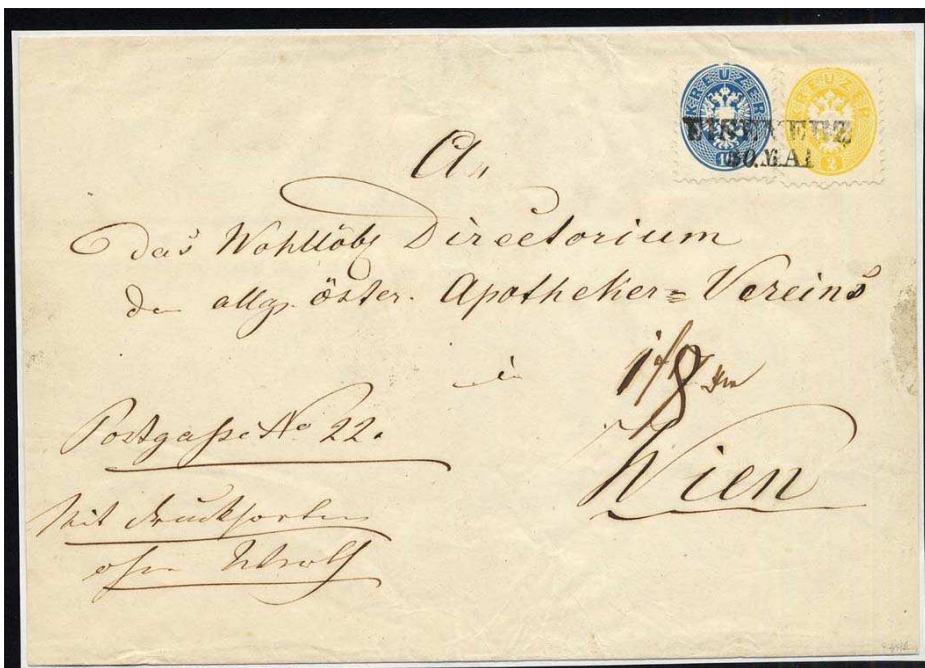 KREUZER KREUZER
EISENERZ
30. MAI
10 2
An
das Wohllöbl Directorium
des allg. öster. Apotheker=Vereins
in
Wien
Postgaße No 22.
Mit Drucksorten
ohne